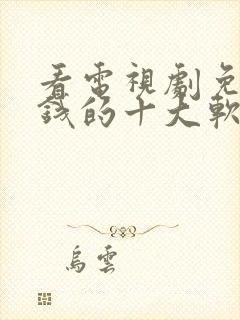 看電視劇免
錢的十大軟
烏雲